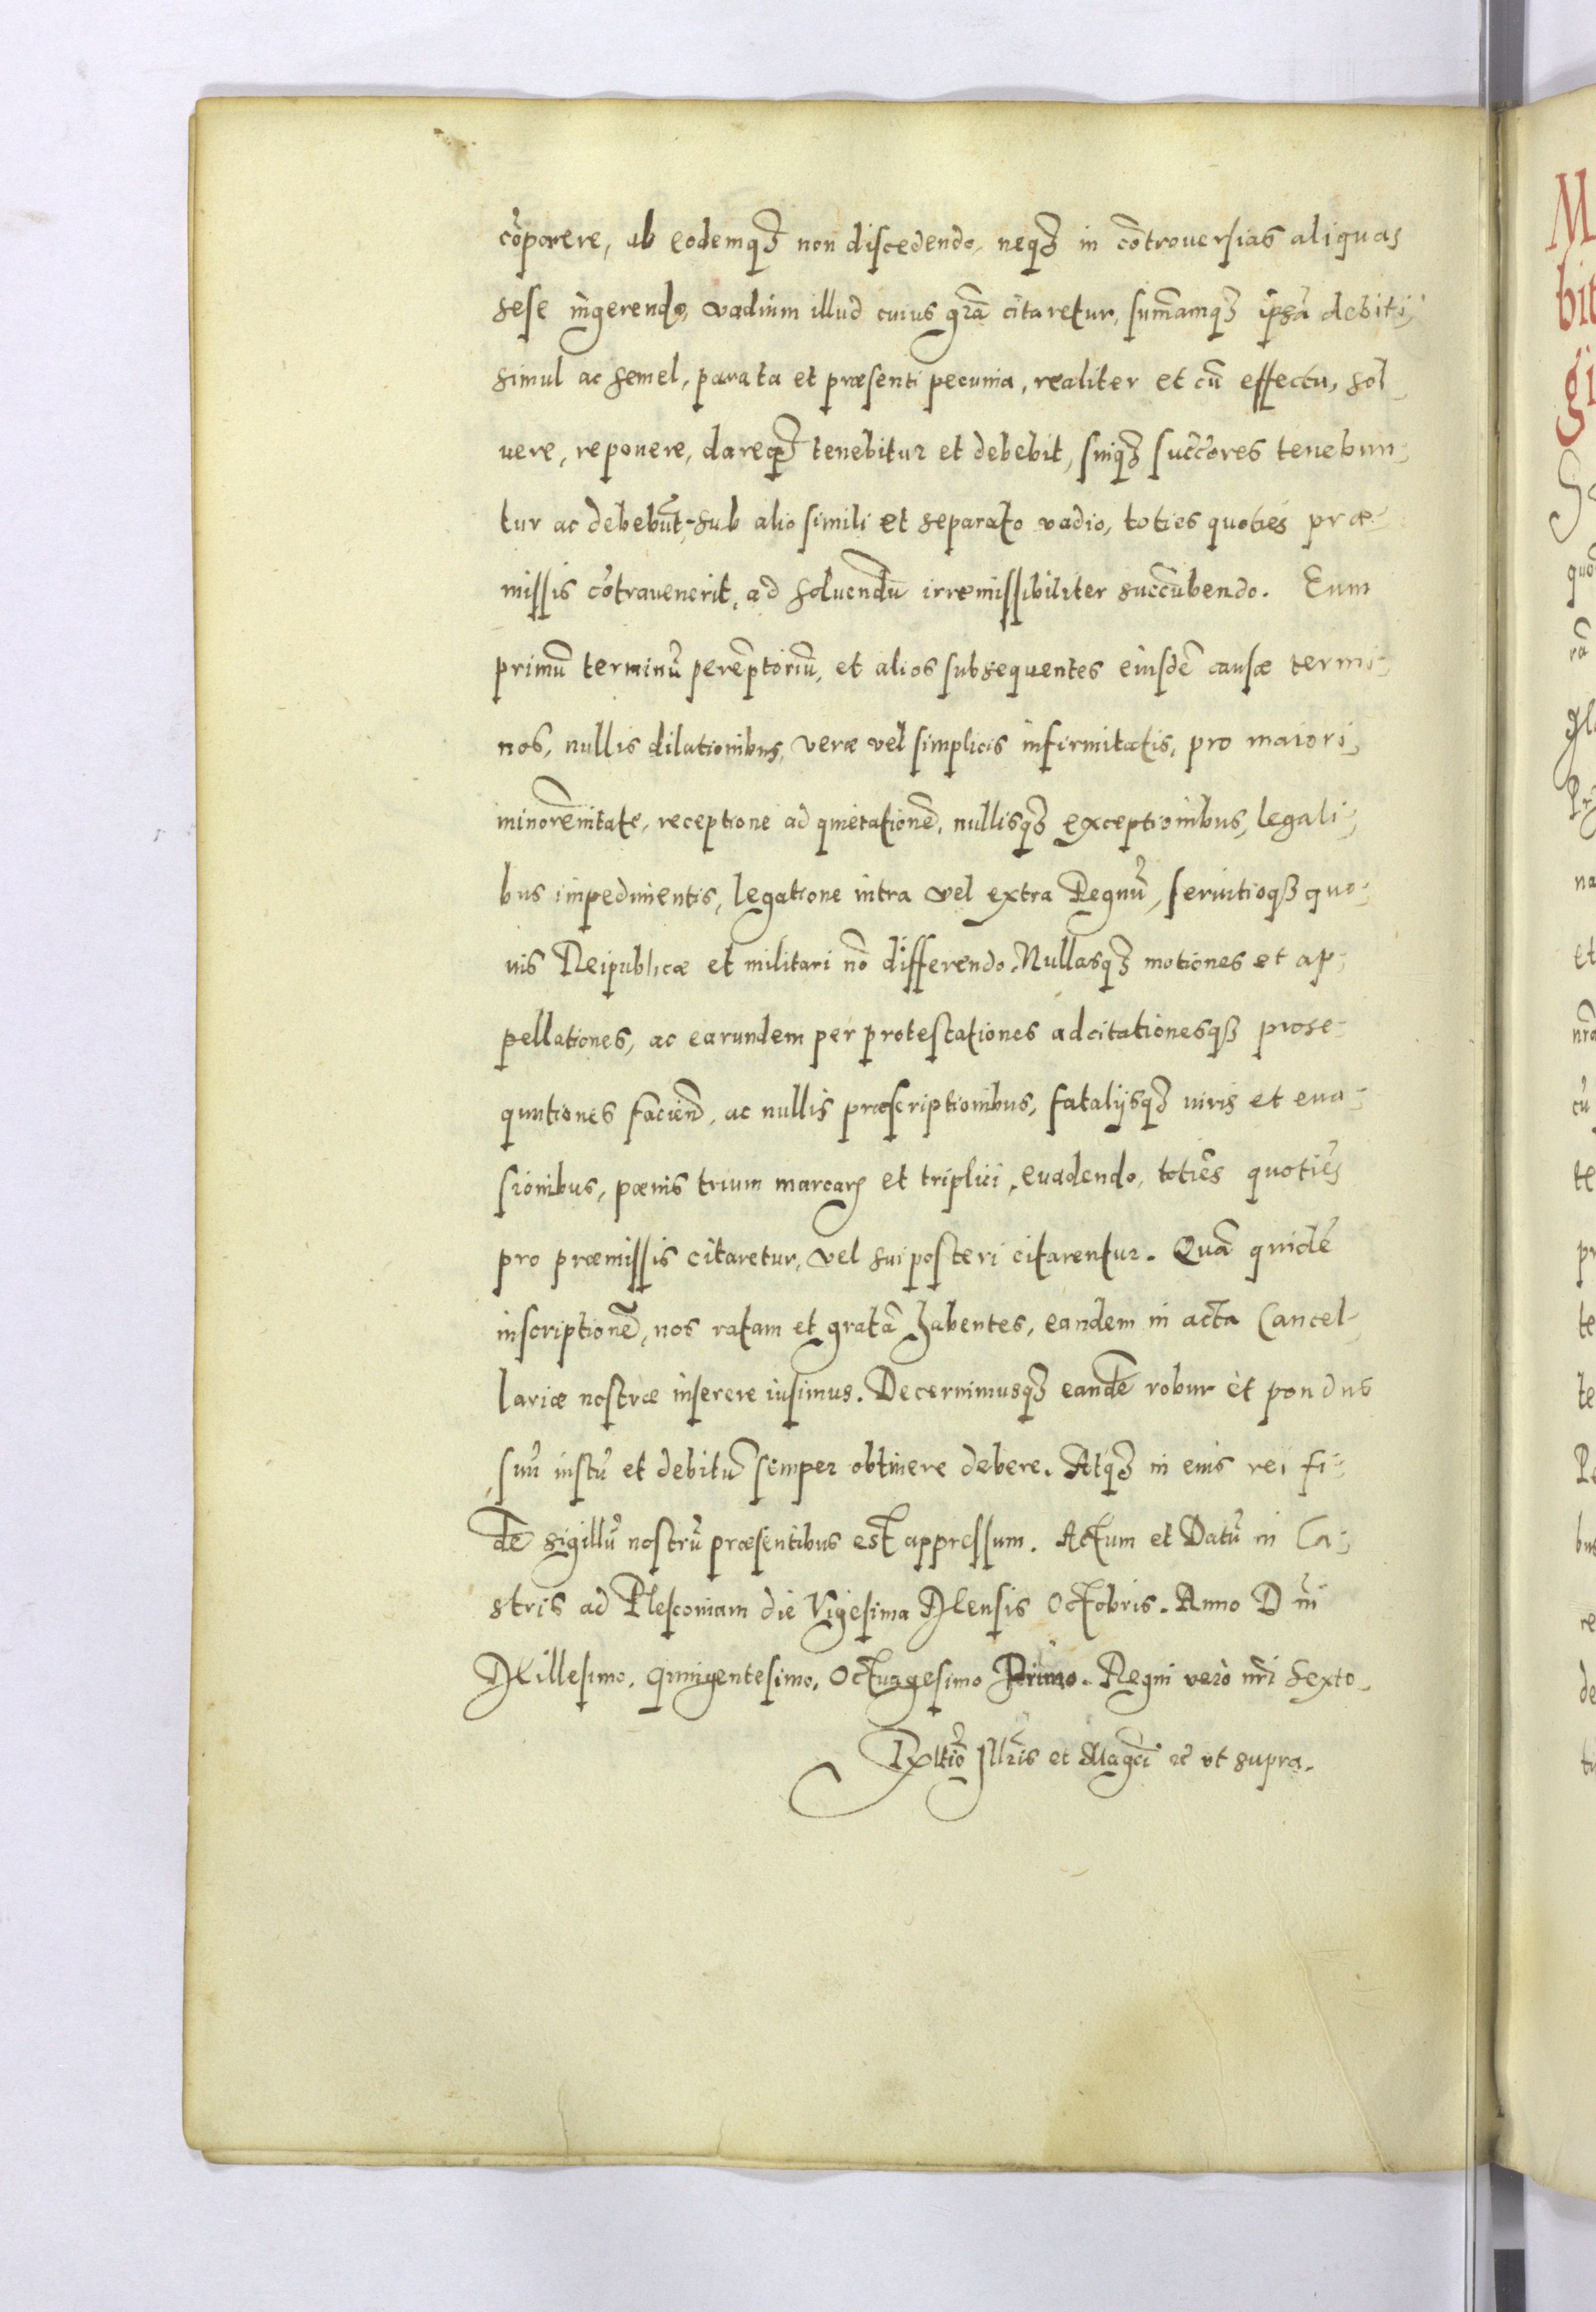 cõparere, ab eodemqꝫ non discedendo, neqꝫ in cõtrouersias aliquas
sese ingerendo, vadium illud cuius grã citaretur, sum̃amqꝫ ipsã debiti,
simul ac semel, parata et præsenti pecunia, realiter et cũ effectu, sol-
uere, reponere, dareqꝫ tenebitur et debebit, suiqꝫ succores tenebun-
tur ac debebũt, sub alio simili et separato vadio, toties quoties præ-
missis cõtrauenerit, ad soluendũ irremissibiliter succũbendo. Eum
primũ terminũ perẽptoriũ, et alios subsequentes eiusdẽ causæ termi-
nos, nullis dilationibus, veræ vel simplicis infirmitatis, pro maiori,
minorẽnitate, receptione ad quietationẽ, nullisqꝫ exceptionibus, legali-
bus impedimentis, legatione intra vel extra Regnũ, seruitioqꝫ quo-
uis Reipublicæ et militari nõ differendo. Nullasqꝫ motiones et ap-
pellationes, ac earundem per protestationes adcitationesqꝫ prose-
quutiones faciend̃, ac nullis præscriptionibus, fatalijsqꝫ iuris et eua-
sionibus, pœnis trium marcarꝫ et triplici, euadendo, totiẽs quotiẽs
pro præmissis citaretur, vel sui posteri citarentur. Quã quidẽ
inscriptionẽ, nos ratam et gratã habentes, eandem in acta Cancel-
lariæ nostræ inserere iusimus. Decernimusqꝫ eandẽ robur et pondus
suũ iustũ et debitũ semper obtinere debere. Atqꝫ in eius rei fi-
dẽ sigillũ nostrũ præsentibus est appressum. Actum et Datũ in Ca-
stris ad Plesconiam die Vigesima Mensis Octobris. Anno Dñi
Millesimo, Quingentesimo, Octuagesimo Primo. Regni vero nr̃i Sexto.
Rꝫltiõ Illr̃is et Mag̃ci ꝛc̃ vt supra.